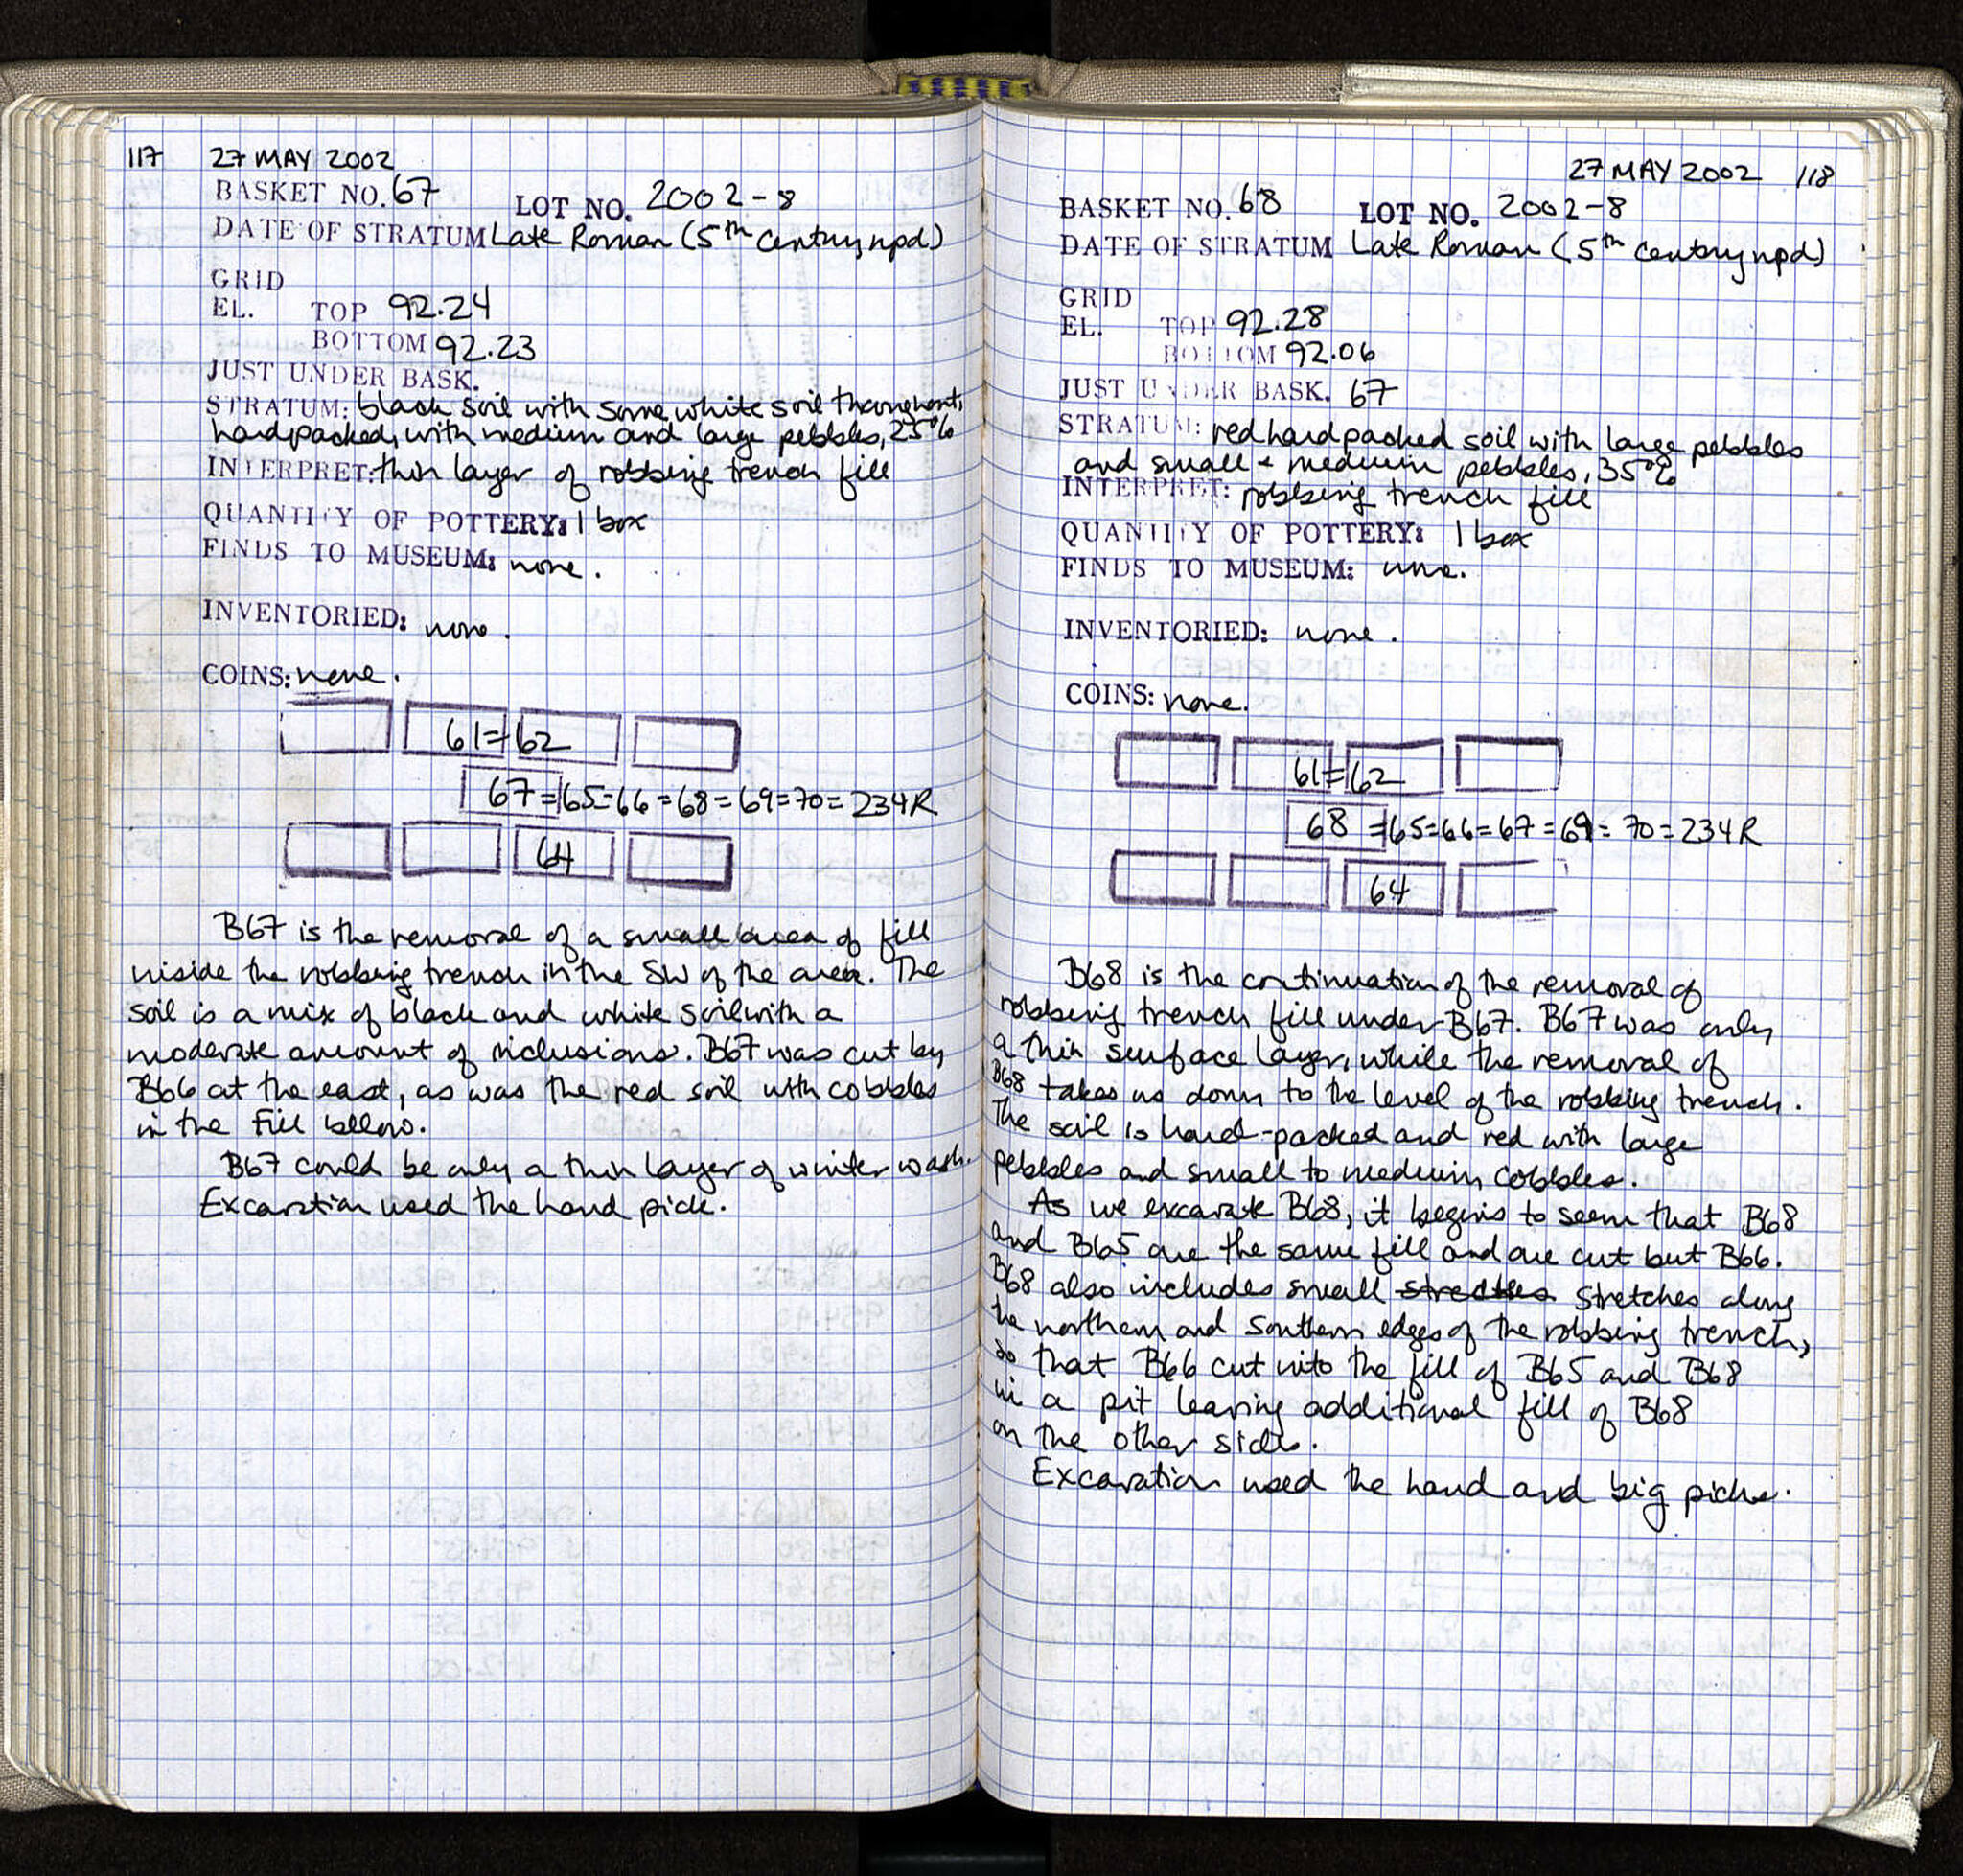 117 27 MAY 2002
BASKET NO. 67 LOT NO. 2002-8
DATE OF STRATUM Late Roman (5th century npd)
GRID
EL. TOP 92.24
BOTTOM 92.23
JUST UNDER BASK.
STRATUM: black soil with some white soil throughout,
hardpacked, with medium and large pebbles, 25%
INTERPRET: thin layer of robbing trench fill
QUANTITY OF POTTERY: 1 box
FINDS TO MUSEUM: none.
INVENTORIED: none.
COINS: none.
61=62
67=65=66=68=69=70=234R
64
B67 is the removal of a small area of fill
inside the robbing trench in the SW of the area. The
soil is a mix of black and white soil with a
moderate amount of inclusions. B67 was cut by
B66 at the east, as was the red soil with cobbles
in the fill below.
B67 could be only a thin layer of winter wash.
Excavation used the hand pick.
27 MAY 2002 118
BASKET NO. 68 LOT NO. 2002-8
DATE OF STRATUM Late Roman (5th century npd)
GRID
EL. TOP 92.28
BOTTOM 92.06
JUST UNDER BASK. 67
STRATUM: red hard packed soil with large pebbles
and small + medium pebbles, 35%
INTERPRET: robbing trench fill
QUANTITY OF POTTERY: 1 box
FINDS TO MUSEUM: none.
INVENTORIED: none.
COINS: none.
61=62
68=65=66=67=69=70=234R
64
B68 is the continuation of the removal of
robbing trench fill under B67. B67 was only
a thin surface layer, while the removal of
B68 takes us down to the level of the robbing trench.
The soil is hard-packed and red with large
pebbles and small to medium cobbles.
As we excavate B68, it begins to seem that B68
and B65 are the same fill and are cut but B66.
B68 also includes small stretches stretches along
the northern and southern edges of the robbing trench,
so that B66 cut into the fill of B65 and B68
in a pit leaving additional fill of B68
on the other side.
Excavation used the hand and big picks.